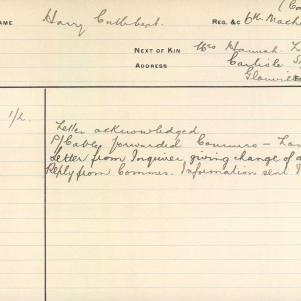 (Co
NAME Harry Cuthbert. REG. &c 6th Mach
NEXT OF KIN Mrs Hannah
ADDRESS Carlisle S
Glanville
1/2.
Letter acknowledged
P/Cable forwarded Commrs –
Letter from Inquirer, giving change of a
Reply from Commrs. Information sent